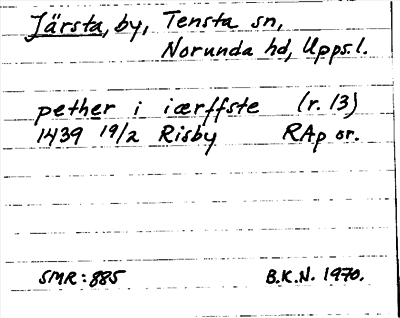 Järsta, by, Tensta sn,
Norunda hd, Uppsl.
pether i iærffste (r. 13)
1439 19/2 Risby RAp or.
SMR: 885 B.K.N. 1970.